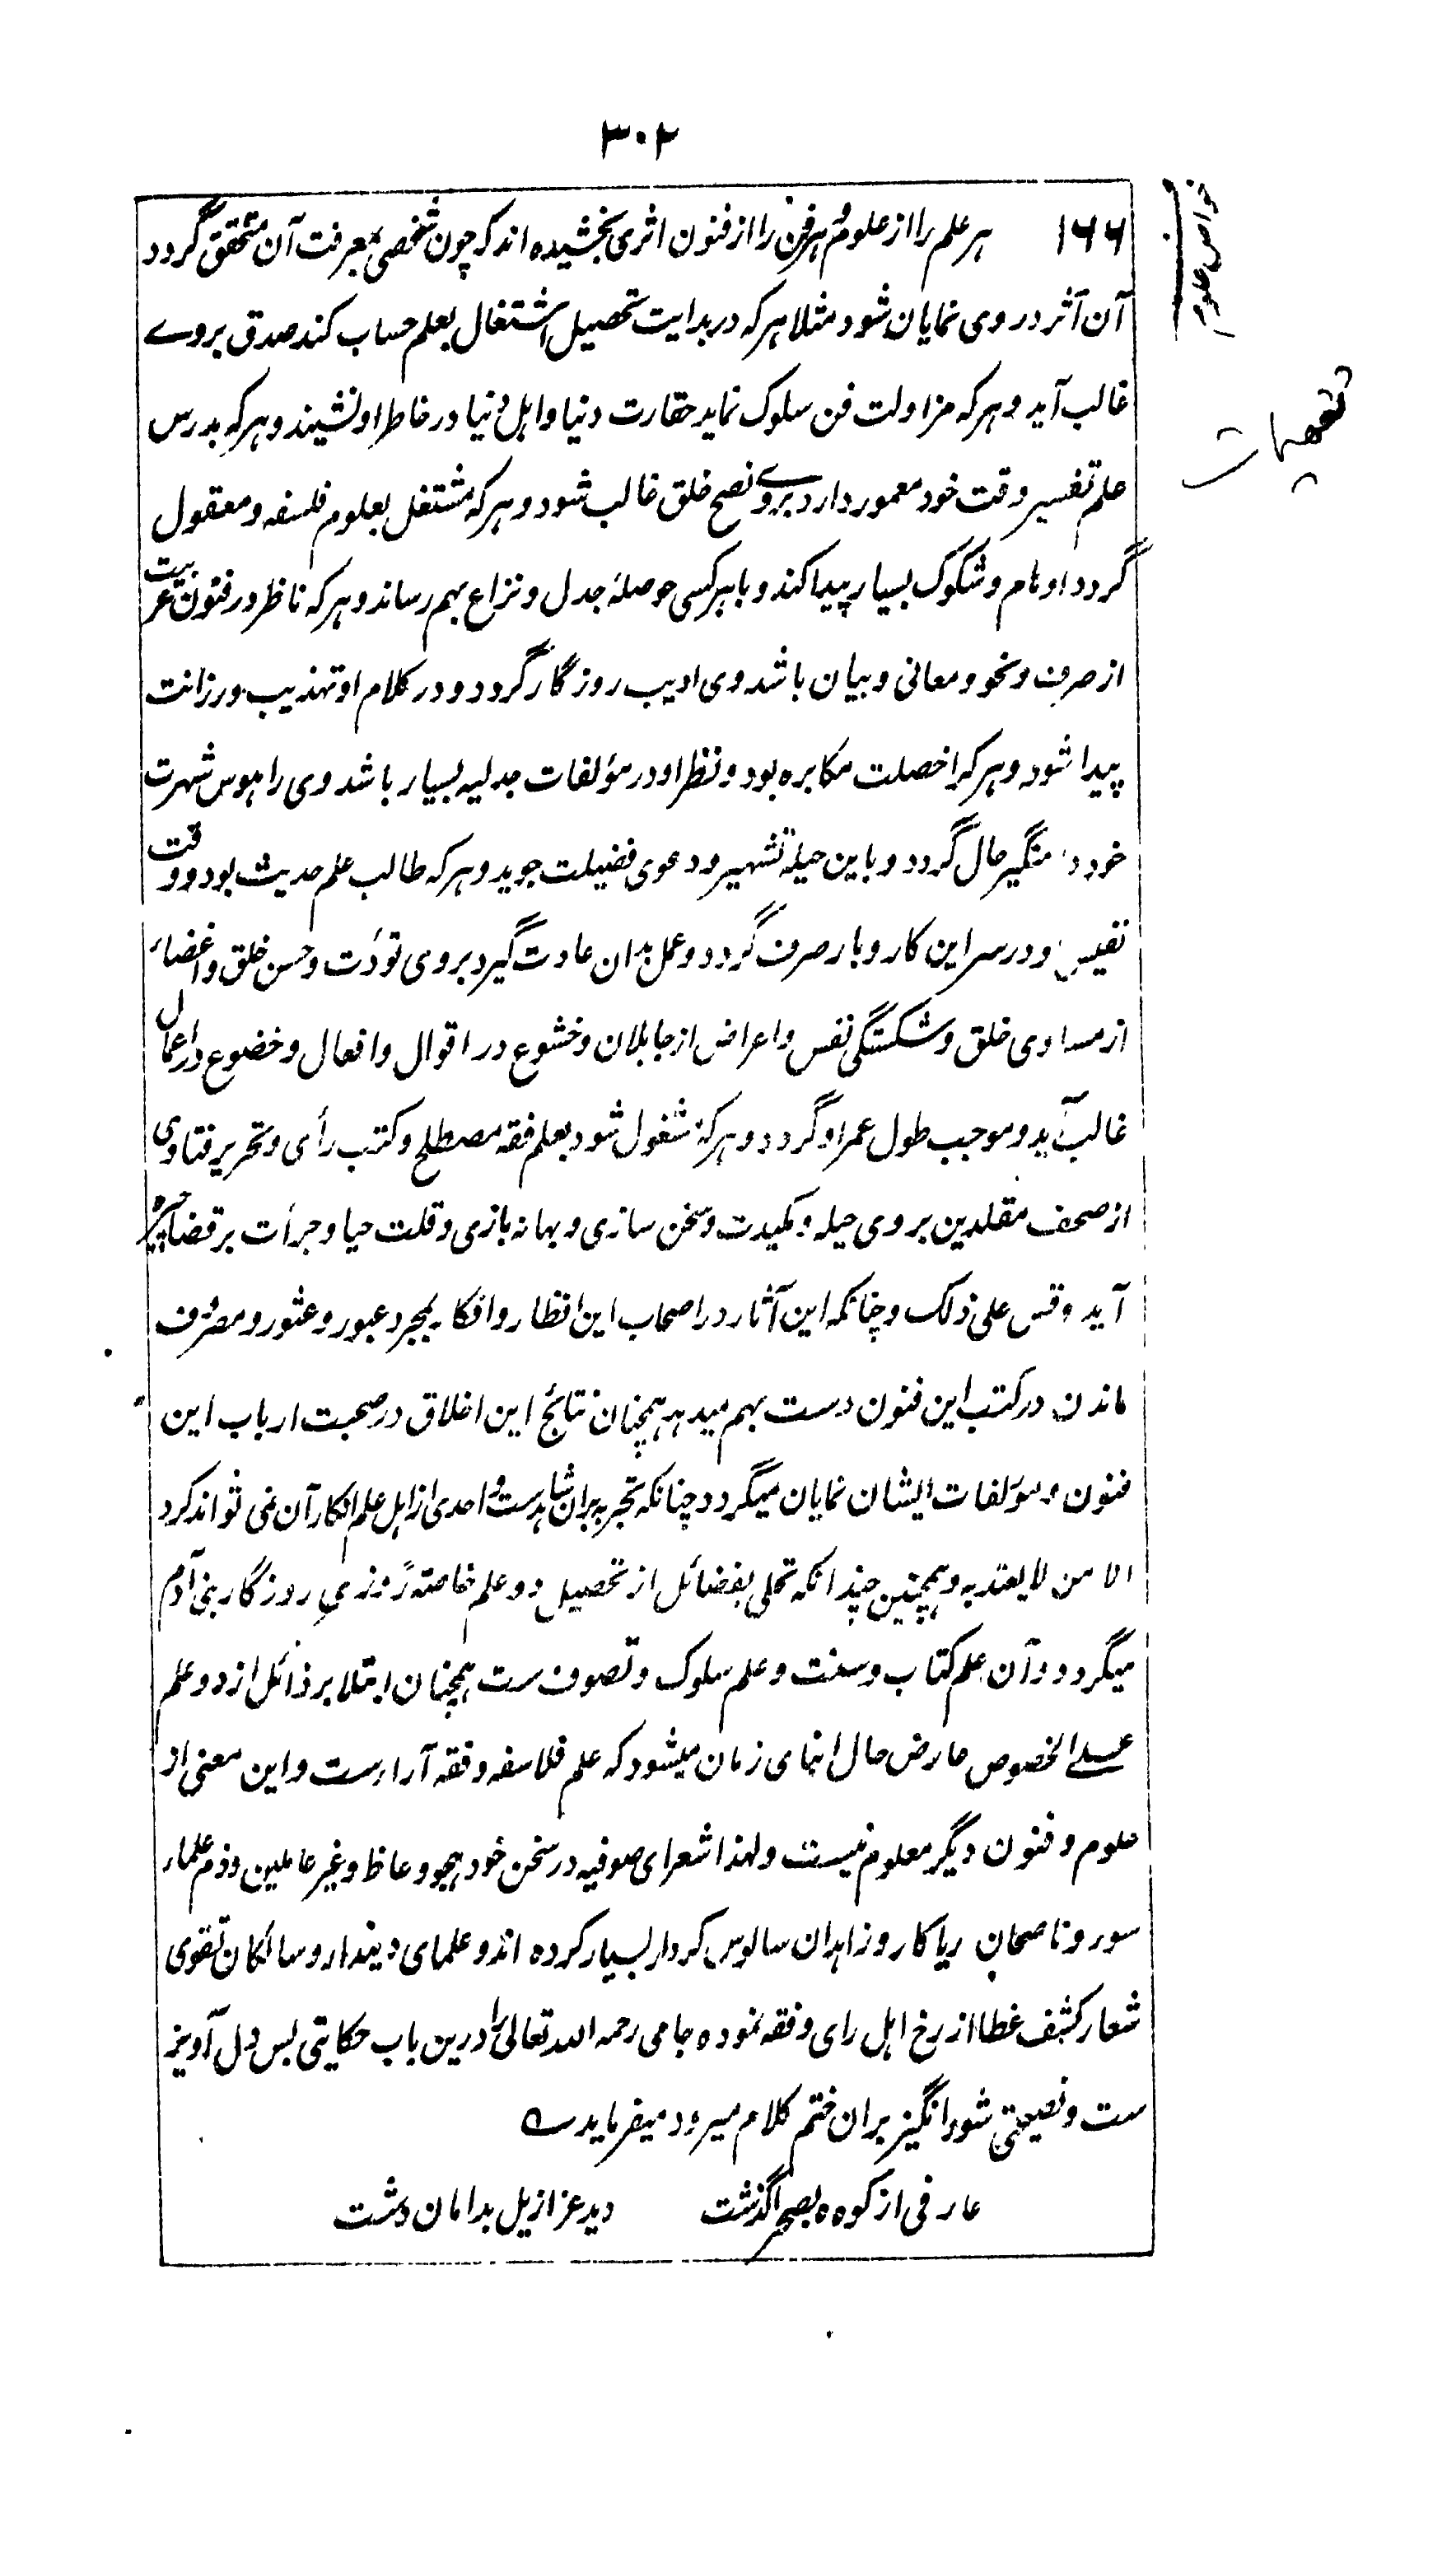 ۳۰۲
خواص علوم
۱۶۶ هر علم را از علوم و هر فن را از فنون اثری بخشیده اند که چون شخصی بمعرفت آن متحقق گردد
آن اثر در وی نمایان شود مثلا هرکه در بدایت تحصیل اشتغال بعلم حساب کند صدق بروے
غالب آید و هرکه مزاولت فن سلوک نماید حقارت دنیا و اهل دنیا در خاطر او نشیند و هرکه بدرس
علم تفسیر وقت خود معمور دارد بروے نصح خلق غالب شود و هرکه مشتغل بعلوم فلسفه و معقول
گردد اوهام و شکوک بسیار پیدا کند و با هرکسی حوصلهٔ جدل و نزاع بهم رساند و هرکه ناظر در فنون عربیت
از صرف و نحو و معانی و بیان باشد وی ادیب روزگار گردد و در کلام او تهذیب و رزانت
پیدا شود و هرکرا خصلت مکابره بود و نظر او در مؤلفات جدلیه بسیار باشد وی را هوس شهرت
خود دامنگیر حال گردد و باین حیله تشهیر و دعوی فضیلت جوید و هرکه طالب علم حدیث بود و وقت
نفیس او در سر این کار و بار صرف گردد و عمل بدان عادت گیرد بروی تؤدت و حسن خلق و اغضاء
از مساوی خلق و شکستگی نفس و اعراض از جاهلان و خشوع در اقوال و افعال و خضوع در اعمال
غالب آید و موجب طول عمر او گردد و هرکه مشغول شود بعلم فقه مصطلح و کتب رأی و تحریر فتاوی
از صحف مقلدین بروی حیله و مکیدت و سخن سازی و بهانه بازی و قلت حیا و جرأت بر قضا چیره
آید و قس علی ذلک و چنانکه این آثار در اصحاب این انظار و افکار بمجرد عبور و عثور و مصروف
ماندن در کتب این فنون دست بهم میدهد همچنان نتائج این اخلاق در صحبت ارباب این
فنون و مؤلفات ایشان نمایان میگردد چنانکه تجربه بران شاهدست و احدی از اهل علم انکار آن نمی تواند کرد
الا من لا یعتد به و همچنین چندانکه تحلی بفضائل از تحصیل دو علم خاصتهً روزیِ روزگار بنی آدم
میگردد و آن علم کتاب و سنت و علم سلوک و تصوف ست همچنان ابتلا برذائل از دو علم
علے الخصوص عارض حال ابنای زمان میشود که علم فلاسفه و فقه آراءست و این معنی از
علوم و فنون دیگر معلوم نیست و لهذا شعرای صوفیه در سخن خود هجو وعاظ و غیر عاملین و ذم علماء
سوء و ناصحان ریاکار و زاهدان سالوس کردار بسیار کرده اند و علمای دیندار و سالکان تقوی
شعار کشف غطا از رخ اهل رای و فقه نموده جامی رحمه الله تعالی را درین باب حکایتی بس دل آویز
ست و نصیحتی شورانگیز بران ختم کلام میرود میفرماید ے
عارفی از کوه بصحرا گذشت دید عزازیل بدامان دشت